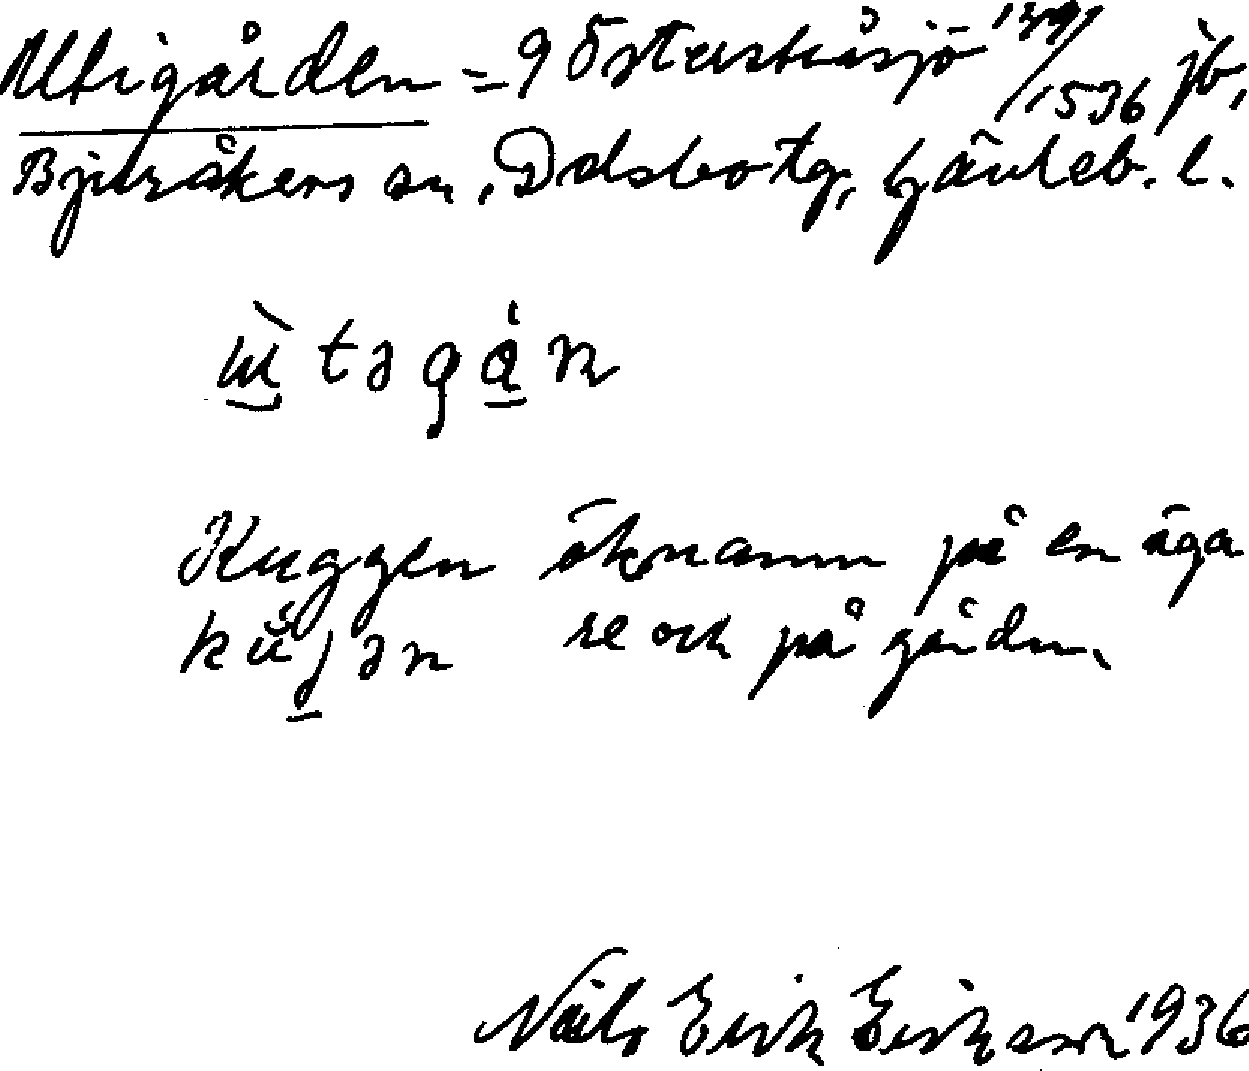 Utigården = 9 Österstråsjö 1/1536 jb,
Bjuråkers sn, Delsbo tg, Gävleb. l.
ɯ̀təgɑ̀n
Kuggen öknamn på en äga
kùgən re och på gården.
Nails Erik Eriksson 1936